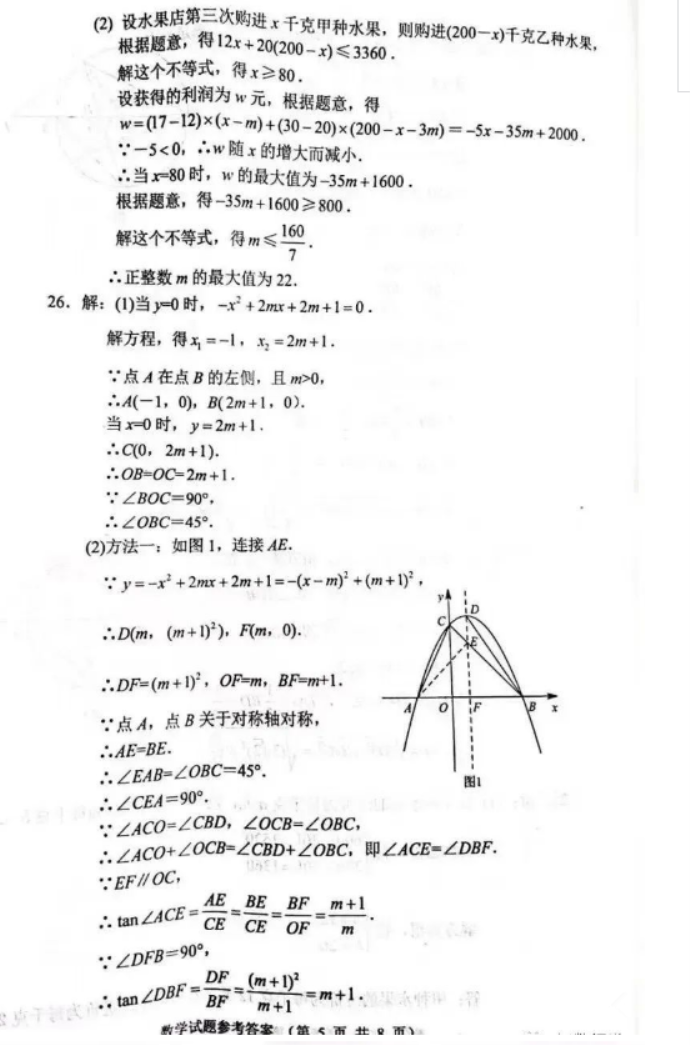 (2) 设水果店第三次购进 x 千克甲种水果，则购进(200－x)千克乙种水果，
根据题意，得12x+20(200－x)≤3360．
解这个不等式，得 x≥80．
设获得的利润为 w 元，根据题意，得
w=(17－12)×(x－m)+(30－20)×(200－x－3m)＝－5x－35m+2000．
∵－5<0，∴w 随 x 的增大而减小．
∴当 x=80 时，w 的最大值为－35m+1600．
根据题意，得－35m+1600≥800．
解这个不等式，得 m≤160/7．
∴正整数 m 的最大值为 22．
26．解：(1)当 y=0 时，－x²+2mx+2m+1=0．
解方程，得 x₁=－1，x₂=2m+1．
∵点 A 在点 B 的左侧，且 m>0，
∴A(－1，0)，B(2m+1，0)．
当 x=0 时，y=2m+1．
∴C(0，2m+1)．
∴OB=OC=2m+1．
∵∠BOC＝90°，
∴∠OBC＝45°．
(2)方法一：如图 1，连接 AE．
∵y=－x²+2mx+2m+1=－(x－m)²+(m+1)²，
∴D(m，(m+1)²)，F(m，0)．
∴DF=(m+1)²，OF=m，BF=m+1．
∵点 A，点 B 关于对称轴对称，
∴AE=BE．
∴∠EAB=∠OBC＝45°．
∴∠CEA＝90°．
∵∠ACO＝∠CBD，∠OCB＝∠OBC，
∴∠ACO+∠OCB=∠CBD+∠OBC，即∠ACE=∠DBF．
∵EF∥OC，
∴tan∠ACE=AE/CE=BE/CE=BF/OF=(m+1)/m．
∵∠DFB＝90°，
∴tan∠DBF=DF/BF=(m+1)²/(m+1)=m+1．
y
D
C
E
A
O
F
B
x
图1
数学试题参考答案 （第 5 页 共 8 页）